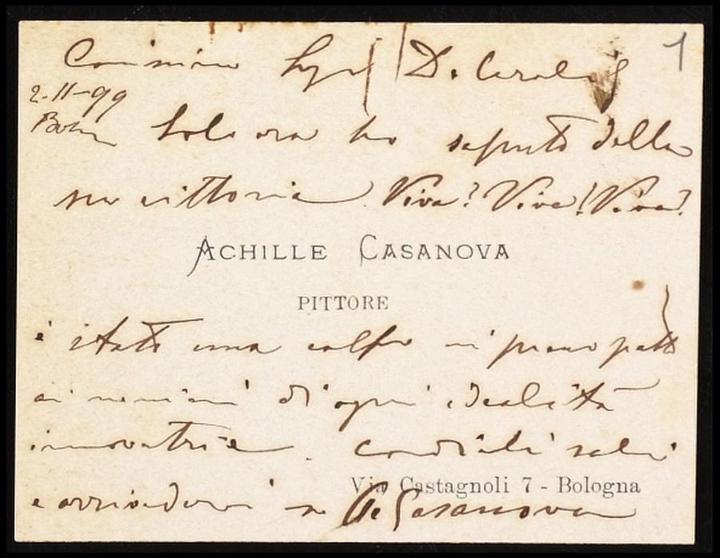 1
Carissimo Sigr De Carolis
2-11-99
Bologna
Solo ora ho saputo della
sua vittoria. Viva! Viva! Viva!
ACHILLE CASANOVA
PITTORE
è stato un colpo in pieno petto
ai nemici di ogni idealità
innovatrice. Cordiali saluti
Via Castagnoli 7 - Bologna
e arrivederci A Casanova